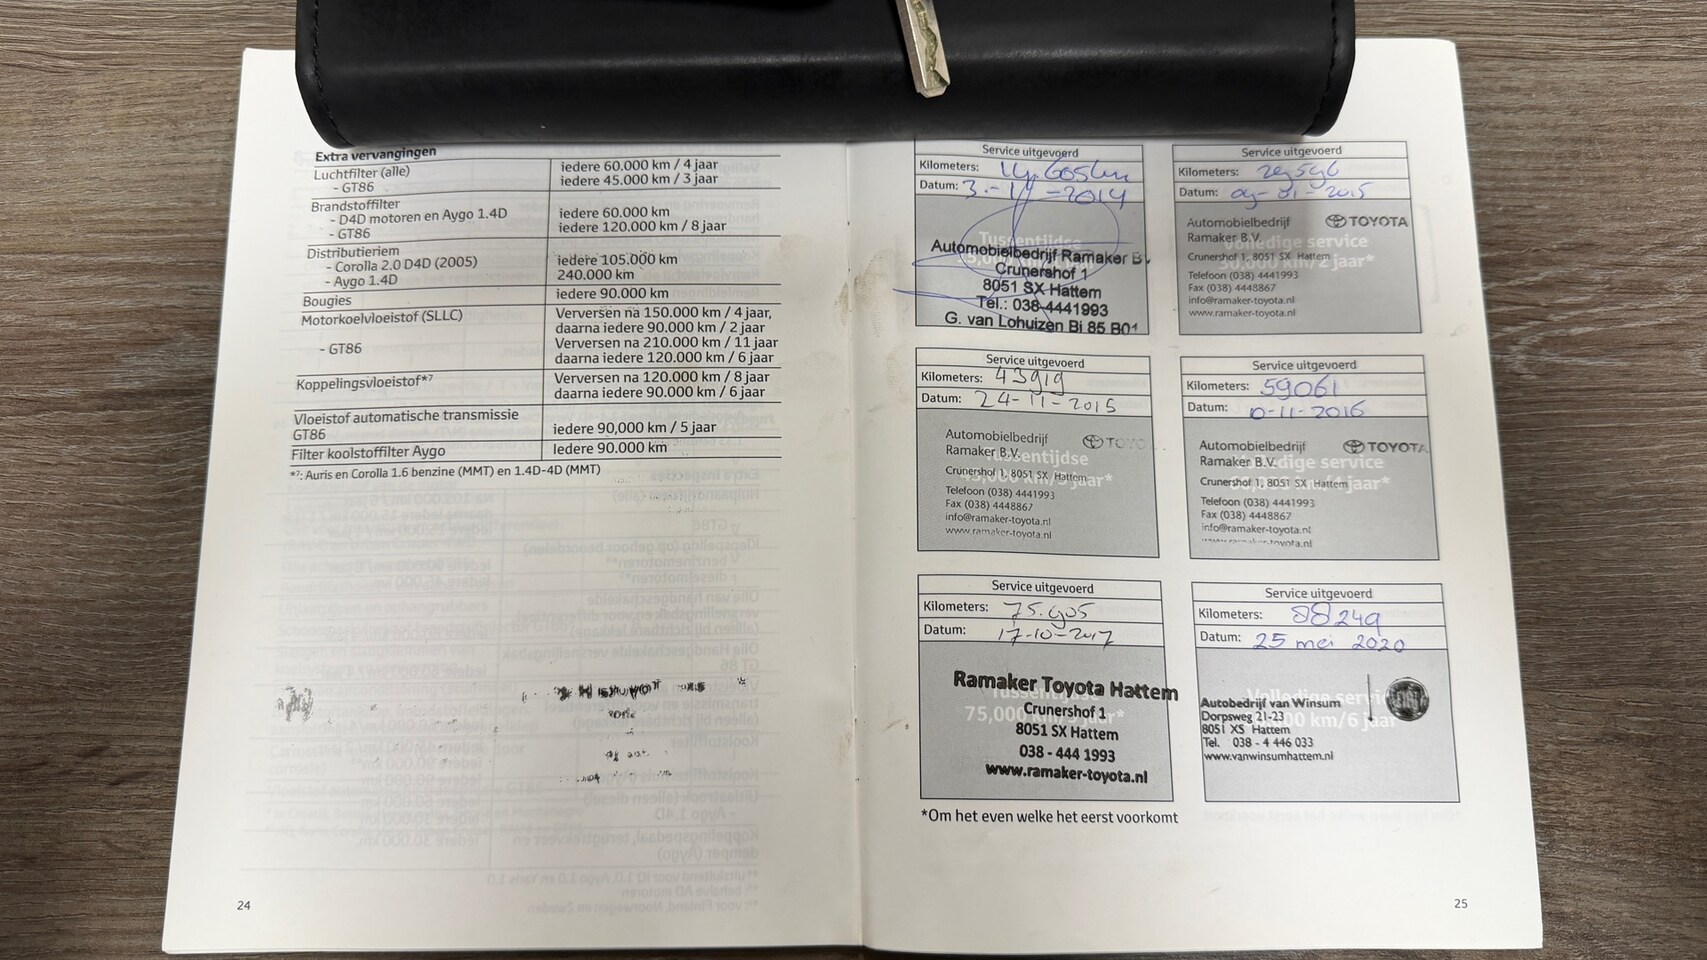 Extra vervangingen
Luchtfilter (alle) iedere 60.000 km / 4 jaar
- GT86 iedere 45.000 km / 3 jaar
Brandstoffilter
- D4D motoren en Aygo 1.4D iedere 60.000 km
- GT86 iedere 120.000 km / 8 jaar
Distributieriem
- Corolla 2.0 D4D (2005) iedere 105.000 km
- Aygo 1.4D 240.000 km
Bougies iedere 90.000 km
Motorkoelvloeistof (SLLC) Verversen na 150.000 km / 4 jaar,
daarna iedere 90.000 km / 2 jaar
- GT86 Verversen na 210.000 km / 11 jaar
daarna iedere 120.000 km / 6 jaar
Koppelingsvloeistof*7 Verversen na 120.000 km / 8 jaar
daarna iedere 90.000 km / 6 jaar
Vloeistof automatische transmissie
GT86 iedere 90,000 km / 5 jaar
Filter koolstoffilter Aygo Iedere 90.000 km
*7: Auris en Corolla 1.6 benzine (MMT) en 1.4D-4D (MMT)
24
Service uitgevoerd
Kilometers:
Datum: 3-11-2014
Tussentijdse
Automobielbedrijf Ramaker B
Crunershof 1
8051 SX Hattem
Tel.: 038-4441993
G. van Lohuizen Bi 85 B01
Service uitgevoerd
Kilometers: 29596
Datum: 09-01-2015
Automobielbedrijf TOYOTA
Ramaker B.V.
Volledige service
Crunershof 1, 8051 SX Hattem
30,000 km/2 jaar*
Telefoon (038) 4441993
Fax (038) 4448867
info@ramaker-toyota.nl
www.ramaker-toyota.nl
Service uitgevoerd
Kilometers: 43919
Datum: 24-11-2015
Automobielbedrijf TOYO
Ramaker B.V.
Tussentijdse
Crunershof 1, 8051 SX Hattem
45,000 km/3 jaar*
Telefoon (038) 4441993
Fax (038) 4448867
info@ramaker-toyota.nl
www.ramaker-toyota.nl
Service uitgevoerd
Kilometers: 59061
Datum: 10-11-2016
Automobielbedrijf TOYOTA
Ramaker B.V.
Volledige service
Crunershof 1, 8051 SX Hattem
jaar*
Telefoon (038) 4441993
Fax (038) 4448867
info@ramaker-toyota.nl
www.ramaker-toyota.nl
Service uitgevoerd
Kilometers: 75.905
Datum: 17-10-2017
Ramaker Toyota Hattem
Tussentijdse
Crunershof 1
75,000 km/5 jaar*
8051 SX Hattem
038 - 444 1993
www.ramaker-toyota.nl
Service uitgevoerd
Kilometers: 88249
Datum: 25 mei 2020
Volledige servi
Autobedrijf van Winsum
Dorpsweg 21-23
km/6 jaar
8051 XS Hattem
Tel. 038 - 4 446 033
www.vanwinsumhattem.nl
*Om het even welke het eerst voorkomt
25